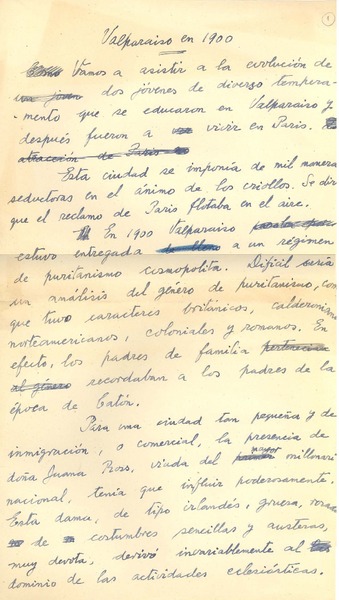 1
Valparaiso en 1900
Vamos a asistir a la evolución de
dos jóvenes de diverso tempera-
mento que se educaron en Valparaiso y
después fueron a vivir en Paris.
atracción de Paris
Esta ciudad se imponía de mil manera
seductoras en el ánimo de los criollos. Se dir
que el reclamo de Paris flotaba en el aire.
En 1900 Valparaiso
estuvo entregada a un régimen
de puritanismo cosmopolita. Difícil sería
un análisis del género de puritanismo, con
que tuvo caracteres británicos, calderonian
norteamericanos, coloniales y romanos. En
efecto, los padres de familia pertenecian
al género recordaban a los padres de la
época de Catón.
Para una ciudad tan pequeña y de
inmigración, o comercial, la presencia de
doña Juana Ross, viuda del mayor millonari
nacional, tenía que influir poderosamente.
Esta dama, de tipo irlandés, gruesa, rosada
de costumbres sencillas y austeras,
muy devota, derivó invariablemente al
dominio de las actividades eclesiásticas.